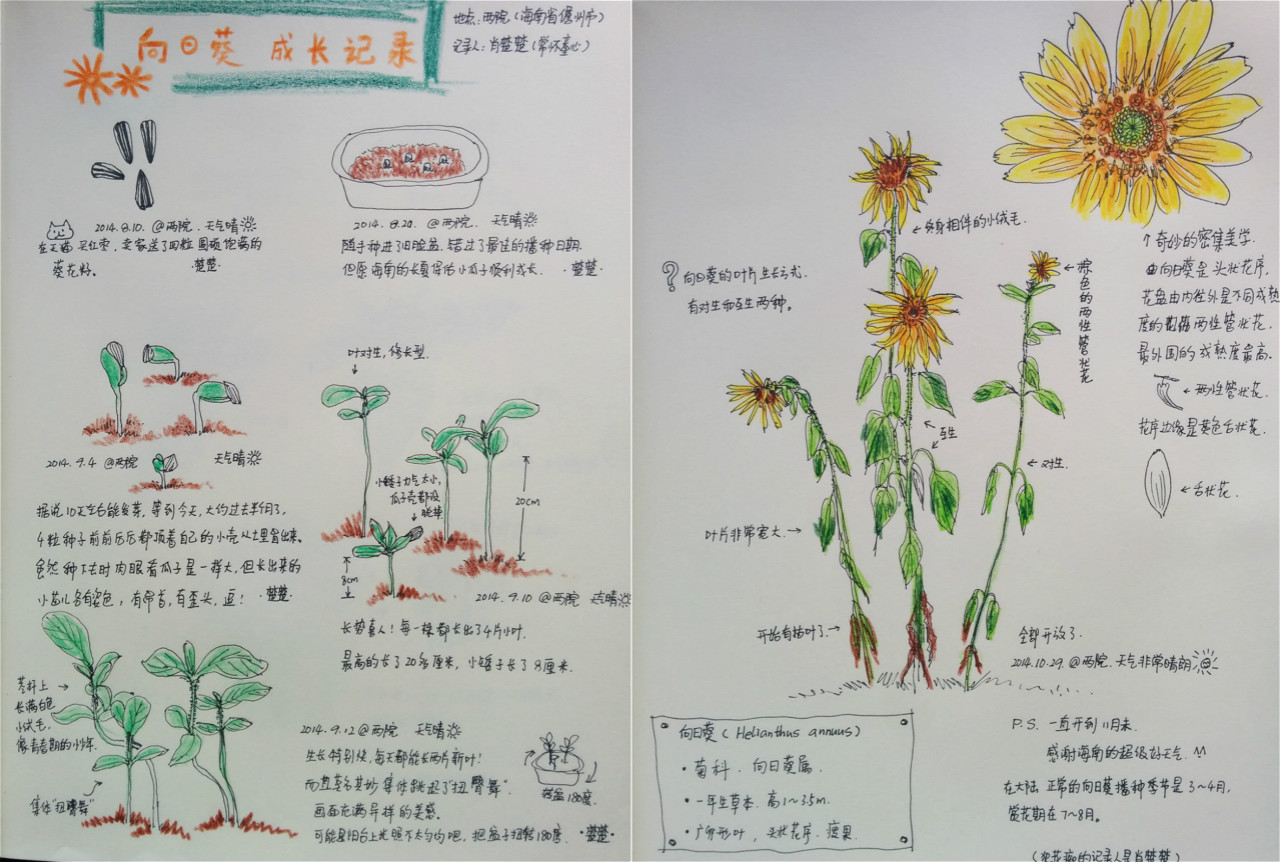 向日葵 成长记录
地点:两院(海南省儋州市)
记录人:肖楚楚(常怀童心)
2014.8.10. @两院. 天气晴
在天猫买红枣,卖家送了四粒圆硕饱满的
葵花籽。 ·楚楚·
2014.8.20. @两院. 天气晴
随手种进了旧脸盆。错过了最佳的播种日期.
但愿海南的长夏保佑小瓜子顺利成长. ·楚楚·
2014.9.4 @两院 天气晴
据说10天左右能发芽,等到今天,大约过去半个月了,
4粒种子前前后后都顶着自己的小壳从土里冒出来。
虽然种下去时肉眼看瓜子是一样大,但长出来的
小苗儿各有姿色,有昂首,有歪头,逗! ·楚楚·
叶对生,修长型.
小矮子力气太小,
瓜子壳都没
挣掉
20cm
8cm
2014.9.10 @两院 天气晴
长势喜人!每一棵都长出了4片小叶.
最高的长了20多厘米,小矮子长了8厘米.
茎杆上
长满白色
小绒毛,
像青春期的小少年.
集体"扭臀舞"
2014.9.12 @两院 天气晴
生长特别快,每天都能长两片新叶!
而且莫名其妙集体跳起了"扭臀舞".
画面充满异样的美感.
可能是阳台上光照不太均匀吧,把盆子扭转180度. ·楚楚·
转盆180度.
全身相伴的小绒毛.
? 向日葵的叶片生长方式
有对生和互生两种。
棕色的两性管状花
↑奇妙的密集美学.
向日葵是头状花序,
花盘由内往外是不同成熟
度的两性管状花,
最外围的成熟度最高。
←两性管状花.
花序边缘是黄色舌状花.
←舌状花.
互生
对生.
叶片非常宽大.→
开始有枯叶了.→
全部开放了.
2014.10.29. @两院. 天气非常晴朗
向日葵(Helianthus annuus)
·菊科. 向日葵属.
·一年生草本. 高1~3.5m.
·广卵形叶,头状花序. 瘦果.
P.S. 一直开到11月末.
感谢海南的超级好天气.
在大陆 正常的向日葵播种季节是3~4月,
赏花期在7~8月。